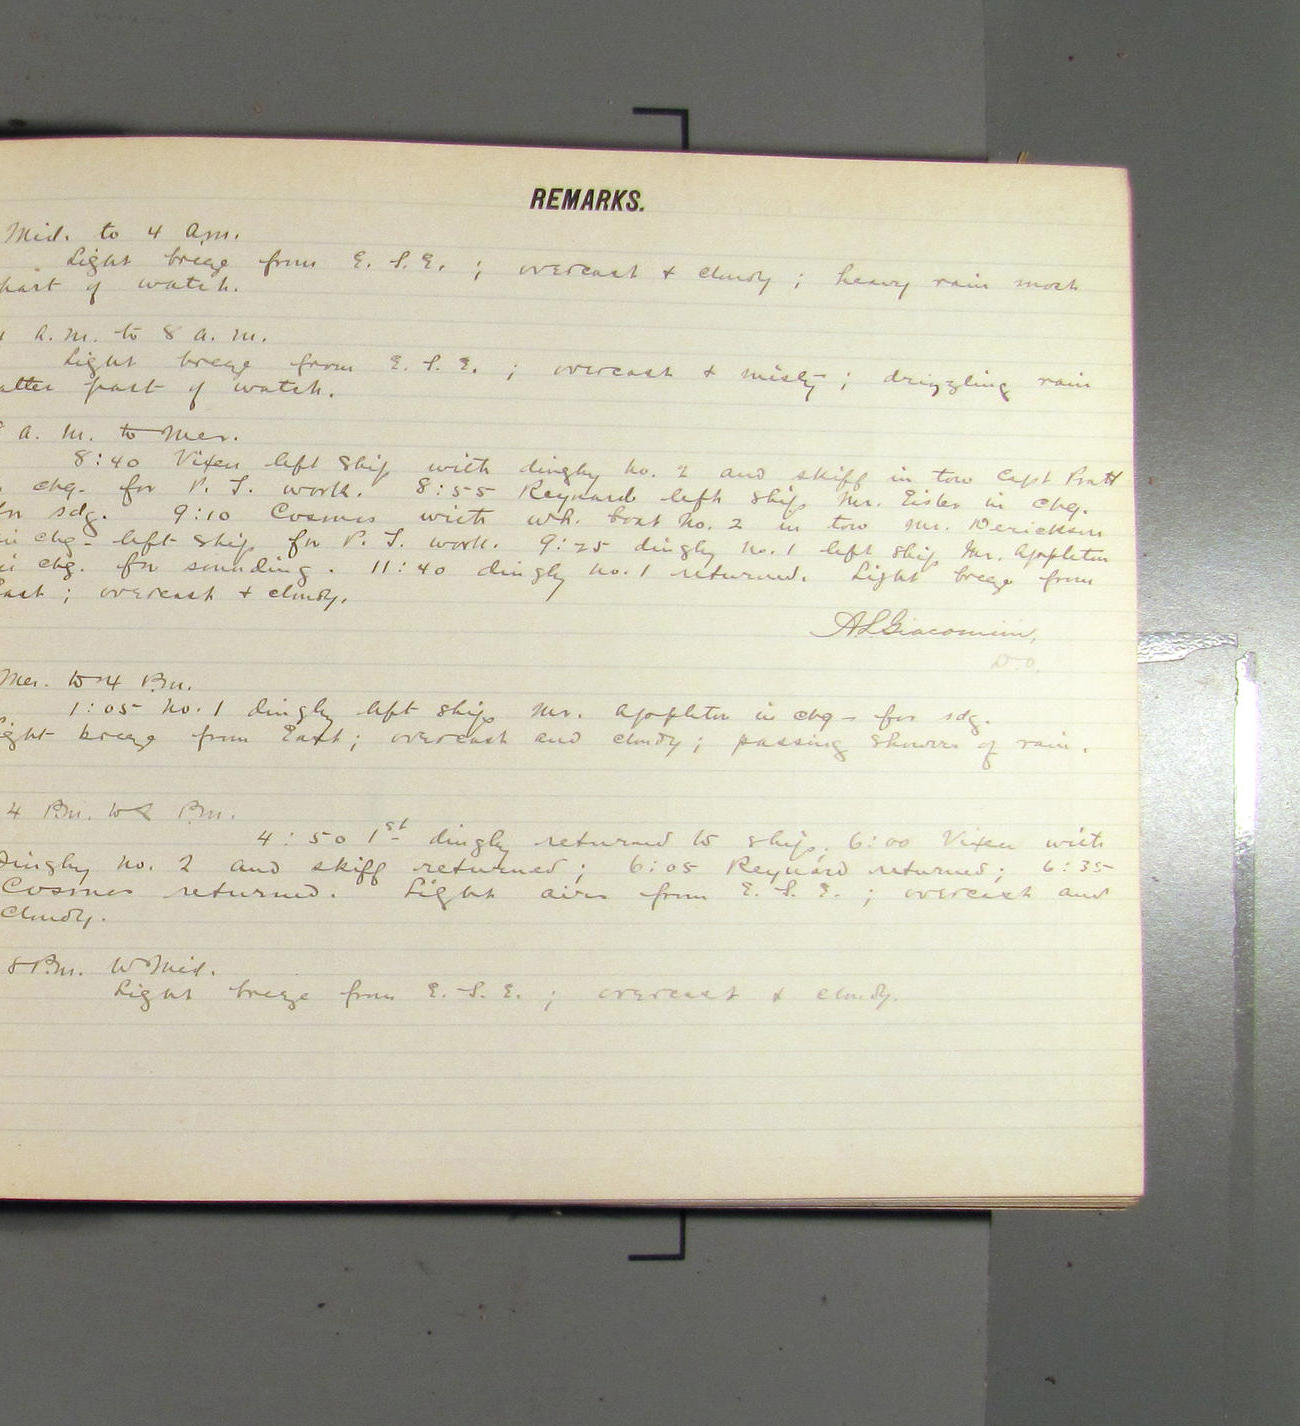 REMARKS.
Mid. to 4 a.m.
Light breeze from E. S. E. ; overcast + cloudy ; heavy rain most
part of watch.
a. m. to 8 a. m.
Light breeze from E. S. E. ; overcast + misty ; drizzling rain
latter part of watch.
8 a. m. to Mer.
8:40 Vixen left ship with dinghy no. 2 and skiff in tow Capt Pratt
chg. for P. T. work. 8:55 Reynard left ship Mr. Eisler in chg.
for sdg. 9:10 Cosmos with wh. boat no. 2 in tow Mr. Derickson
in chg. left ship for P. T. work. 9:25 dinghy no. 1 left ship Mr. Appleton
in chg. for sounding. 11:40 dinghy no. 1 returned. Light breeze from
East ; overcast + cloudy.
A L Giacomini,
D.O.
Mer. to 4 P.m.
1:05 no. 1 dinghy left ship Mr. Appleton in chg - for sdg.
light breeze from East ; overcast and cloudy ; passing showers of rain.
4 P.m. to 8 P.m.
4:50 1st dinghy returned to ship. 6:00 Vixen with
dinghy no. 2 and skiff returned ; 6:05 Reynard returned ; 6:35
Cosmos returned. Light airs from E. S. E. ; overcast and
cloudy.
8 P.m. to Mid.
Light breeze from E. S. E. ; overcast & cloudy.